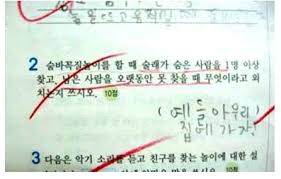 2 숨바꼭질놀이를 할 때 술래가 숨은 사람을 1명 이상
찾고, 남은 사람을 오랫동안 못 찾을 때 무엇이라고 외
치는지 쓰시오. 10점
(얘들아 우리
집에 가자)
3 다음은 악기 소리를 듣고 친구를 찾는 놀이에 대한 설
10점